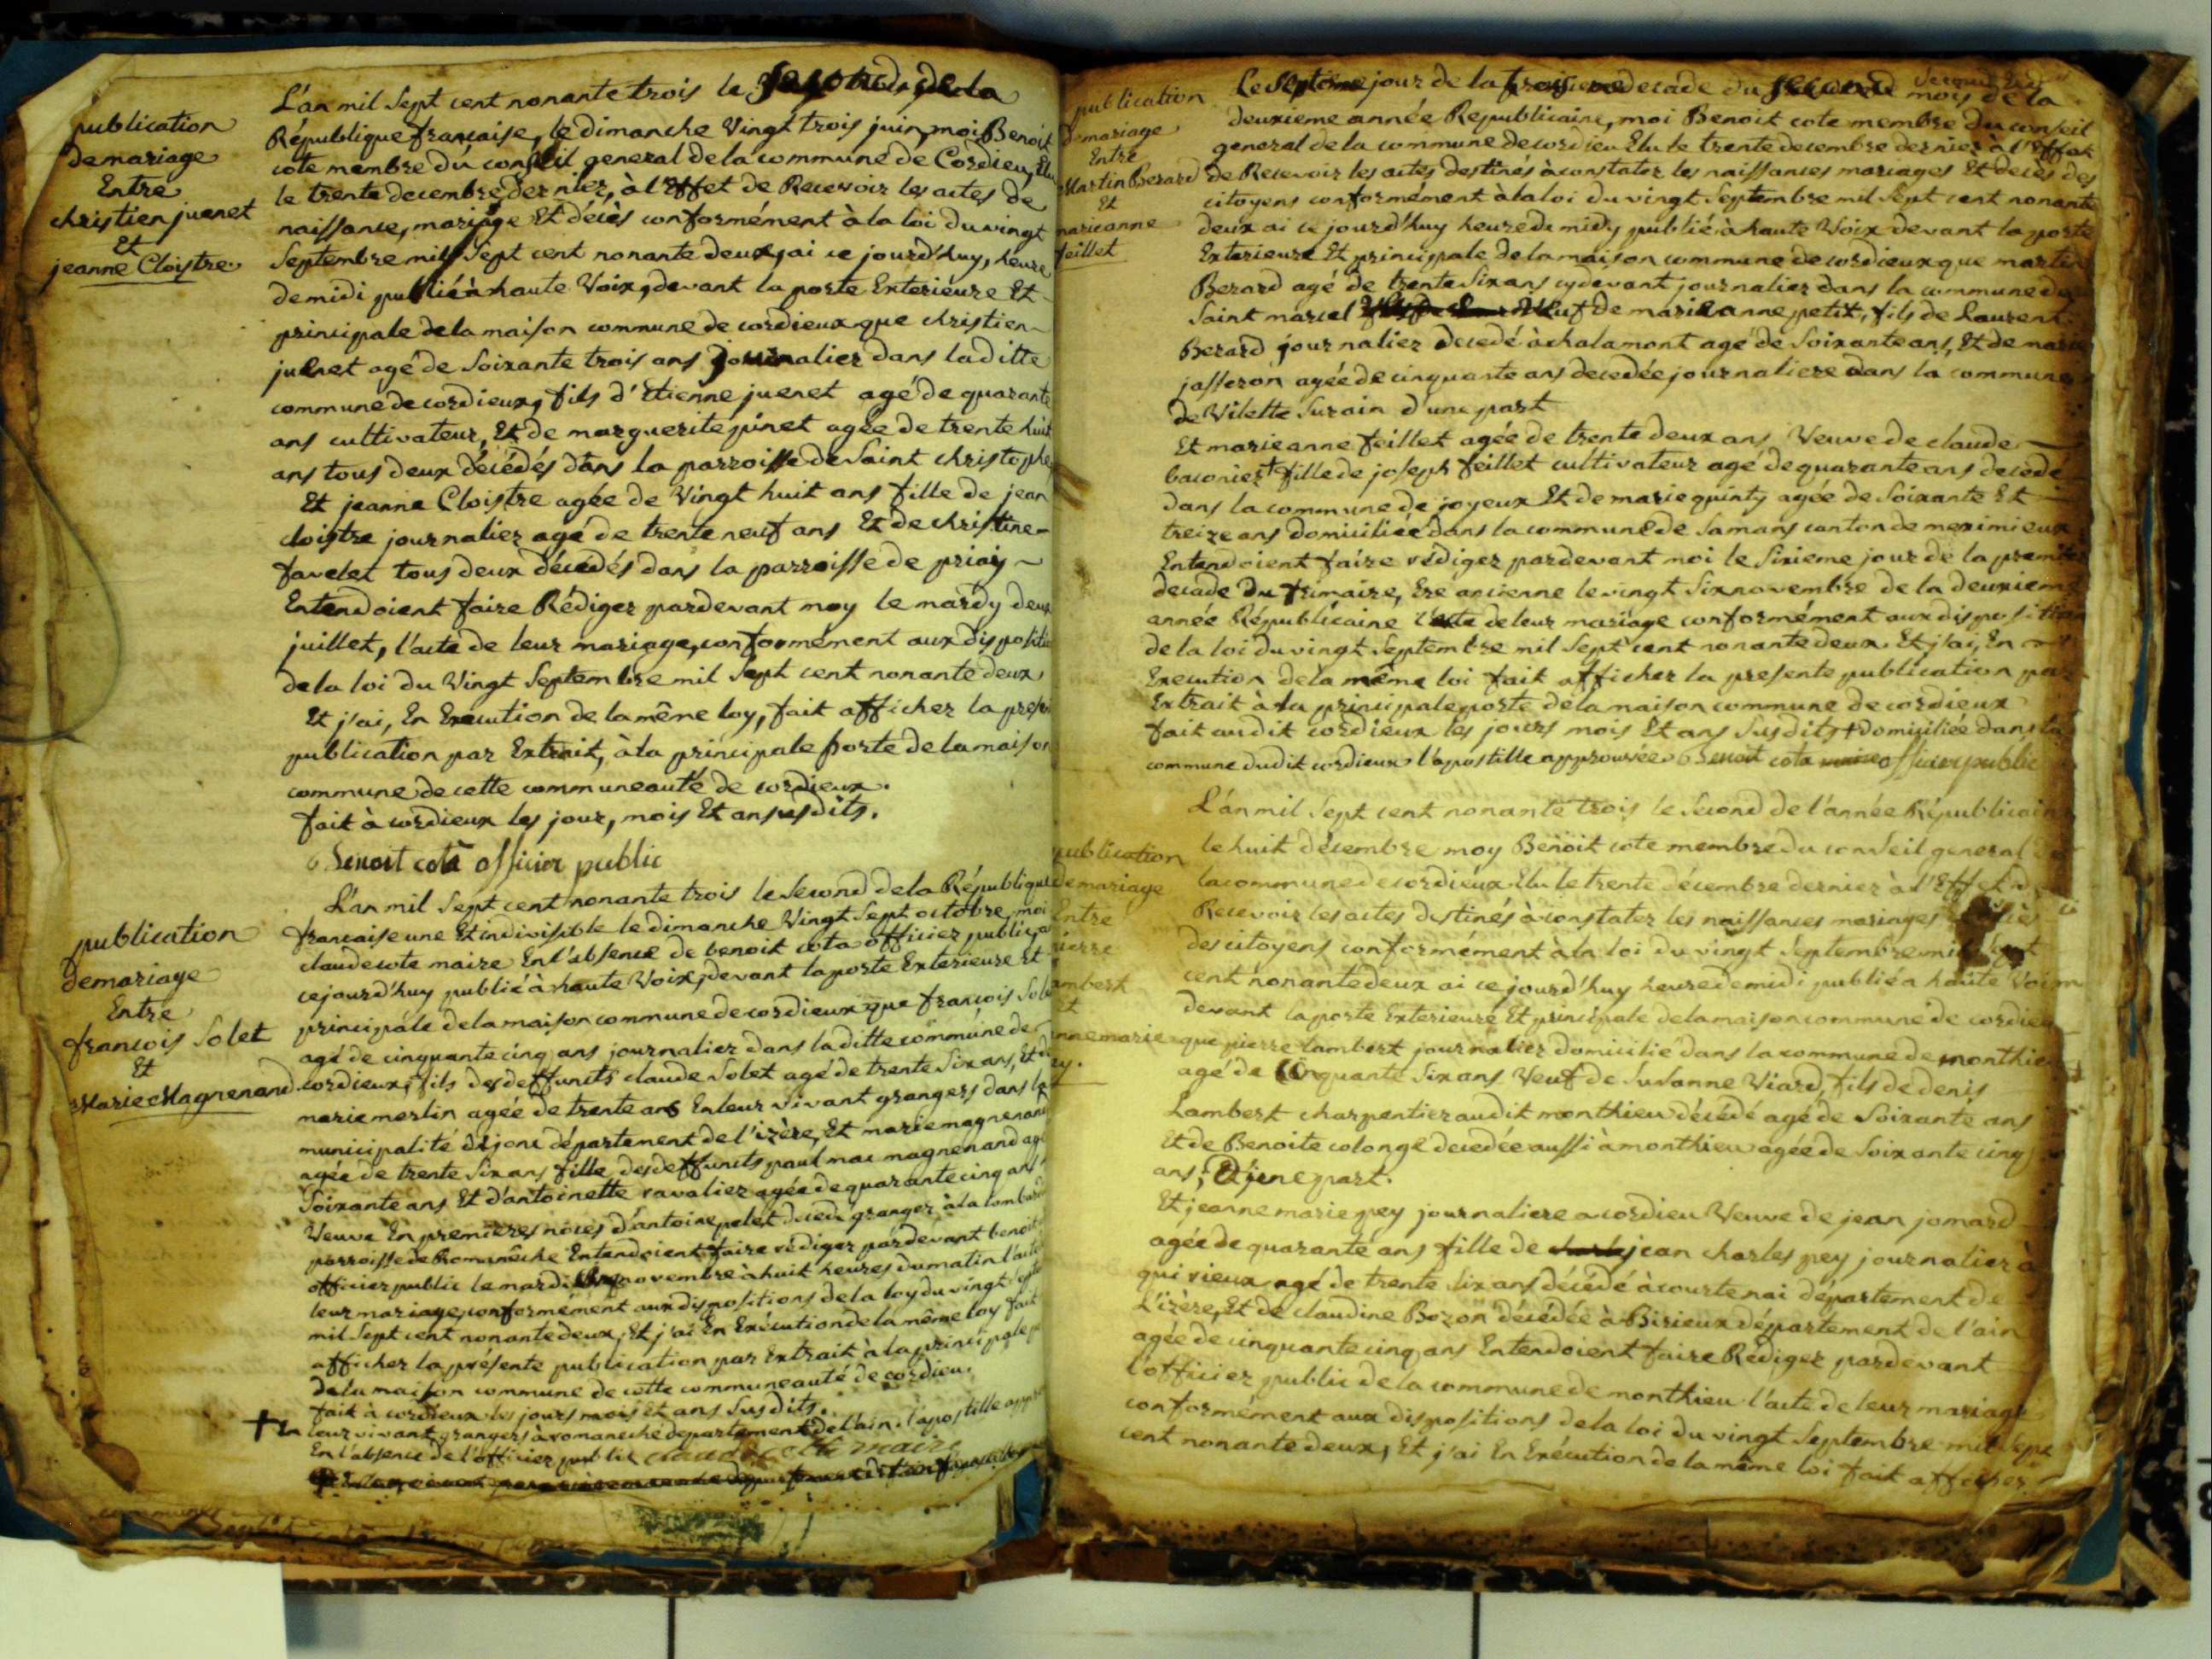 publication
de mariage
Entre
christien juenet
Et
jeanne Cloistre
L'an mil Sept cent nonante trois le second de la
République francaise, le dimanche Vingt trois juin, moi Benoit
cote membre du conseil general de la commune de Cordieu, Elu
le trente decembre dernier, à l'Effet de Recevoir les actes de
naissance, mariage Et décès conformément à la loi du vingt
Septembre mil Sept cent nonante deux, ai ce jourd'huy, heure
de midi publié à haute Voix, devant la porte Exterieure Et
principale de la maison commune de cordieux que christien
juenet agé de Soixante trois ans journalier dans la ditte
commune de cordieux, fils d'Etienne juenet agé de quarante
ans cultivateur, Et de marguerite pinet agée de trente huit
ans tous deux décédés dans la parroisse de Saint christophe
Et jeanne Cloistre agée de Vingt huit ans fille de jean
cloistre journalier agé de trente neuf ans Et de christine
favelet tous deux décédés dans la parroisse de priay
Entendoient faire Rédiger pardevant moy le mardy deux
juillet, l'acte de leur mariage, conformément aux dispositi
de la loi du Vingt Septembre mil Sept cent nonante deux
Et j'ai, En Execution de la même loy, fait afficher la prese
publication par Extrait, à la principale porte de la maison
commune de cette communeauté de cordieux.
fait à cordieux les jour, mois Et an susdits.
Benoit cote officier public
publication
de mariage
Entre
francois Solet
Et
Marie Magnenand
L'an mil Sept cent nonante trois le Second de la République
francaise une Et indivisible le dimanche Vingt Sept octobre, moi
claude cote maire En l'absence de benoit cota officier public, ai
ce jourd'huy publié à haute Voix, devant la porte Exterieure Et
principale de la maison commune de cordieux que francois Sole
agé de cinquante cinq ans journalier dans la ditte commune de
cordieux, fils des deffunts claude Solet agé de trente Six ans, Et de
marie merlin agée de trente ans En leur vivant grangers dans la
municipalité département de l'izère, Et marie magnenand
agée de trente Six ans fille des deffunts paul mac magnenand agé
Soixante ans Et d'antoinette ravalier agée de quarante cinq ans
Veuve En premieres noces d'antoine pelet decedé granger à la
parroisse de Romanêche Entendoient faire rédiger pardevant benoit
officier public le mardi novembre à huit heures du matin l'acte
leur mariage, conformément aux dispositions de la loy du vingt Septe
mil Sept cent nonante deux, Et j'ai En Exécution de la même loy fait
afficher la présente publication par Extrait à la principale p
de la maison commune de cette communeauté de cordieu.
fait à cordieux les jours mois Et ans Susdits.
+ En leur vivant grangers à romaneche departement de l'ain. l'apostille app
En l'absence de l'officier public claude cotte maire
publication
de mariage
Entre
Martin Berard
Et
marieanne
feillet
Le Septième jour de la troisieme decade du second mois de la
deuxieme année Republicaine, moi Benoit cote membre du conseil
general de la commune de cordieu Elu le trente decembre dernier à l'Effet
de Recevoir les actes destinés à constater les naissances mariages Et deces des
citoyens conformément à la loi du vingt Septembre mil Sept cent nonante
deux ai ce jourd'huy heure de midy publié à haute Voix devant la porte
Exterieure Et principale de la maison commune de cordieux que martin
Berard agé de trente Six ans cydevant journalier dans la commune de
Saint marcel Veuf de marieanne petit, fils de Laurent
Berard journalier decedé à chalamont agé de Soixante ans, Et de marie
jasseron agée de cinquante ans decedée journaliere dans la commune
de Vilette Surain d'une part
Et marieanne feillet agée de trente deux ans Veuve de claude
baconier + fille de joseph feillet cultivateur agé de quarante ans decedé
dans la commune de joyeux Et de marie quinty agée de Soixante Et
treize ans domiciliée dans la commune de Samans canton de meximieux
Entendoient faire rédiger pardevant moi le Sixieme jour de la premier
decade du frimaire, Ere ancienne le vingt Six novembre de la deuxieme
année Républicaine l'acte de leur mariage conformément aux disposition
de la loi du vingt Septembre mil Sept cent nonante deux Et j'ai, En
Execution de la même loi fait afficher la presente publication par
Extrait à la principale porte de la maison commune de cordieux
fait audit cordieux les jours mois Et ans Susdits + domiciliée dans la
commune dudit cordieux l'apostille approuvée Benoit cota officier public
publication
de mariage
Entre
pierre
ambert
Et
anne marie
ey.
L'an mil Sept cent nonante trois le Second de l'année Républicain
le huit décembre moy Benoit cote membre du conseil general de
la commune de cordieux Elu le trente décembre dernier à l'Effet de
Recevoir les actes destinés à constater les naissances mariages
des citoyens conformément à la loi du vingt Septembre mil Sept
cent nonante deux ai ce jourd'huy heure de midi publié a haute Voix
devant la porte Exterieure Et principale de la maison commune de cordieu
que pierre Lambert journalier domicilié dans la commune de monthie
agé de cinquante Six ans Veuf de Susanne Viard, fils de denis
Lambert charpentier audit monthieu décédé agé de Soixante ans
Et de Benoite colonge decedée aussi à monthieu agée de Soixante cinq
ans, D'une part.
Et jeanne marie pey journaliere a cordieu Veuve de jean jomard
agée de quarante ans fille de jean charles pey journalier à
quirieux agé de trente Six ans décédé à courtenai département de
L'izère, Et de claudine Bozon décédée à Birieux département de l'ain
agée de cinquante cinq ans Entendoient faire Rédiger pardevant
l'officier public de la commune de monthieu l'acte de leur mariage
conformément aux dispositions de la loi du vingt Septembre mil Sept
cent nonante deux, Et j'ai En Exécution de la même loi fait afficher